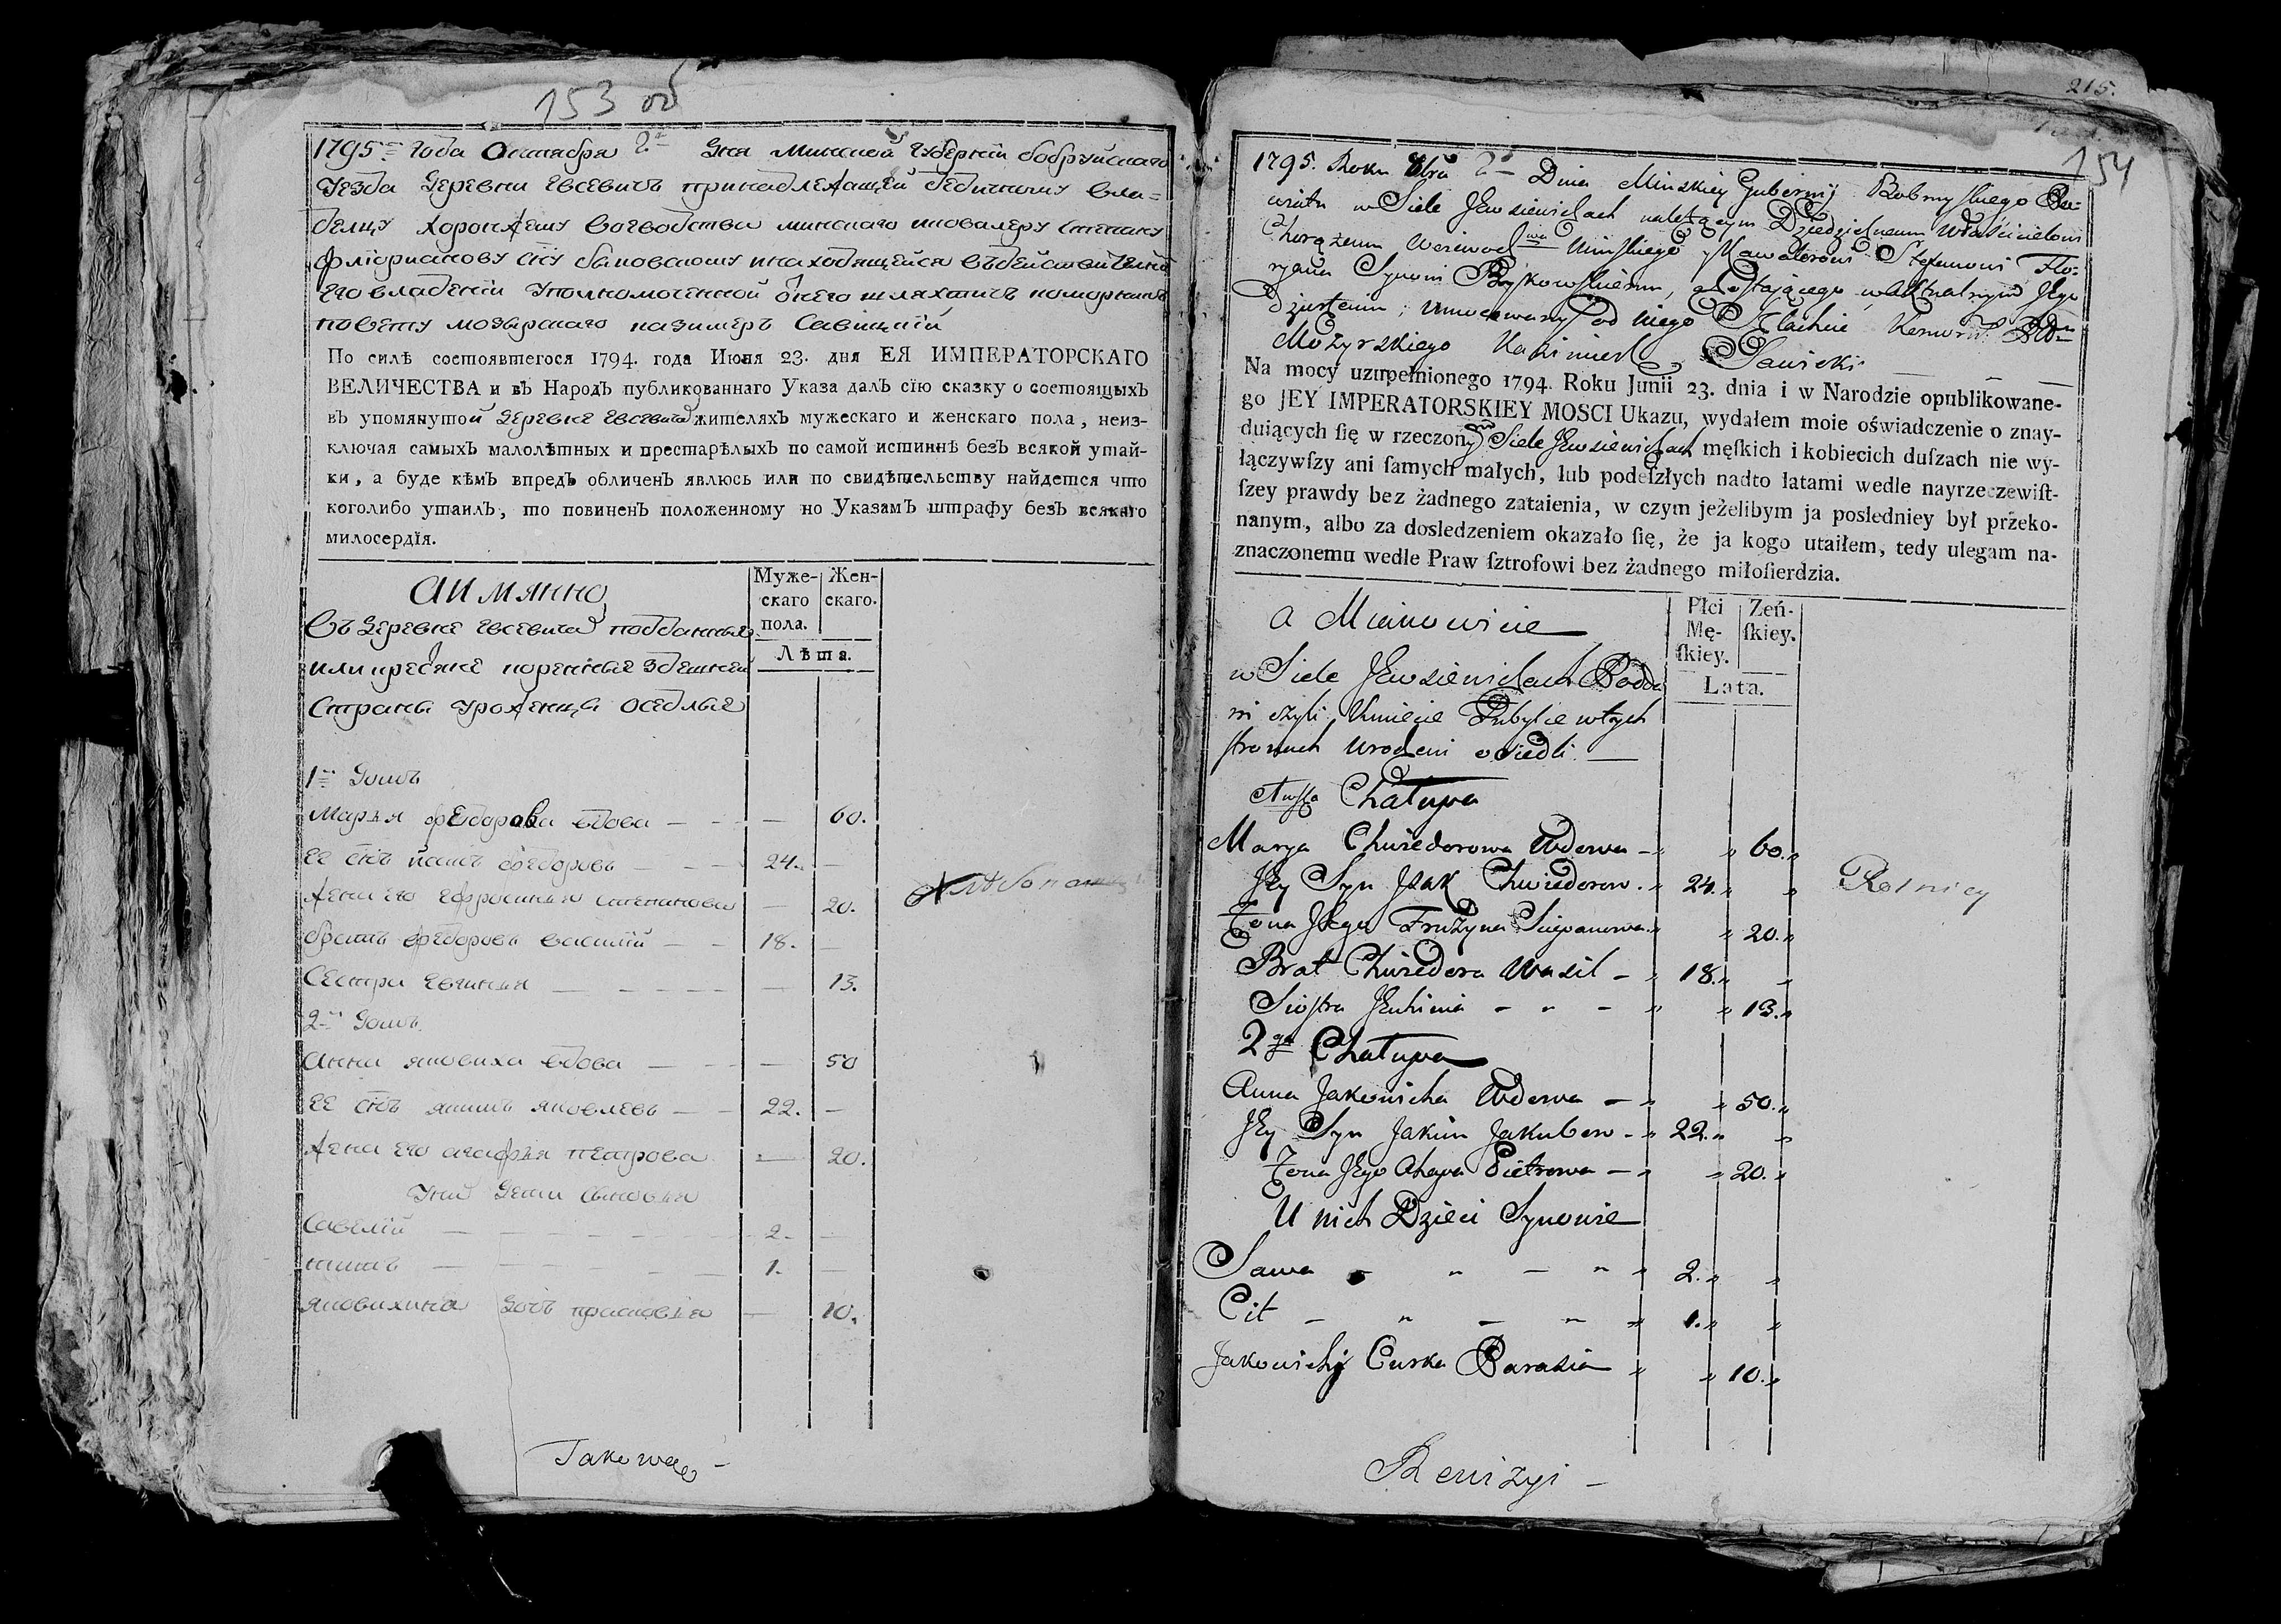 153 об
1795 года Октября 2 дня Минской губернии бобруйскаго
уезда деревни Евсевичъ принадлежащей дедичному вла=
делцу хоронжему воеводства минскаго и ковалеру степану
флориановусну быковскому и находящейся въ действителном
его владении уполномоченной от него шляхтичъ коморникъ
повету мозырскаго казимеръ Савицкий
По силѣ состоявшегося 1794. года Июня 23. дня ЕЯ ИМПЕРАТОРСКАГО
ВЕЛИЧЕСТВА и вѣ Народѣ публикованнаго Указа далъ сїю сказку о состоящыхъ
въ упомянутой деревне Евсевичах жителяхъ мужескаго и женскаго пола, неиз-
ключая самыхъ малолѣтныхъ и престарѣлыхъ по самой истиннѣ безъ всякой утай-
ки, а буде кѣмъ впредь обличенъ явлюсь или по свидѣтельству найдется что
коголибо утаилъ, то повиненъ положенному по Указамъ штрафу безъ всякаго
милосердїя.
Муже-
скаго
пола.
Жен-
скаго.
Лѣта.
А имянно
въ деревне Евсевичах подданные
или пресяжне коренные здешней
страны уроженцы оседлые
1й домъ
Марья федорова вдова — — — 60.
ее снъ исакъ федоровъ — — 24. —
жена его ефросинья степанова — 20.
братъ федоровъ василий — — 18. —
сестра евгинья — — — — — 13.
2й домъ
анна яковиха вдова — — — 50
ее снъ якимъ яковлевъ — — 22. —
жена его агафья петрова — 20.
у них дети сыновья
Савелий — — — — — 2. —
титъ — — — — — 1. —
яковихина дочь прасковья — 10.
Takowey —
215.
154
1795. Roku 8bra 2 Dnia Minskiey Gubernij Bobruyskiego Po=
wiatu w Siele Jewsiewiczach należącym Dziedzicznemu Właścicielowi
Chorążemu Woiewodwa Mińskiego y Kawalerowi Stefanowi Flo=
ryana Synowi Bykowskiemu, a zostaiącego w Aktualnym Jego
Dzierżeniu, Umocowany od niego Szlachcic Komornik Pttu
Mozyrskiego Kazimierz Sawicki
Na mocy uzupełnionego 1794. Roku Junii 23. dnia i w Narodzie opublikowane-
go JEY IMPERATORSKIEY MOSCI Ukazu, wydałem moie oświadczenie o znay-
duiących ſię w rzeczonym Siele Jewsiewiczach męſkich i kobiecich duſzach nie wy-
łączywſzy ani ſamych małych, lub podeſzłych nadto latami wedle nayrzeczewiſt-
ſzey prawdy bez żadnego zataienia, w czym jeżelibym ja posledniey był przeko-
nanym, albo za dosledzeniem okazało ſię, że ja kogo utaiłem, tedy ulegam na-
znaczonemu wedle Praw ſztrofowi bez żadnego miłoſierdzia.
Płci
Mę-
ſkiey.
Zeń-
ſkiey.
Lata.
a Mianowicie
w Siele Jewsiewiczach Podda
ni czyli Kmiecie Pubylce w tych
stronach Urodzeni osiedli. —
Chałupa
Marya Chwiedorowa Wdowa — „ „ 60. „
Jey Syn Jzak Chwiedorow. „ 24. „ „
Zona Jego Fružyna Sciepanowa „ „ 20. „
Brat Chwiedora Wasil — „ 18. „ „
Siostra Jewhinia — „ — „ „ 13. „
2ga Chałupa
Anna Jakowicha Wdowa — „ „ 50. „
Jey Syn Jakim Jakubow — „ 22. „ „
Zona Jego Ahapa Pietrowa — „ „ 20. „
U nich Dzieci Synowie
Sawa — „ — „ „ 2. „ „
Cit — „ — „ „ 1. „ „
Jakowichy Curka Parasia „ „ 10. „
Rolnicy
Rewizyi —